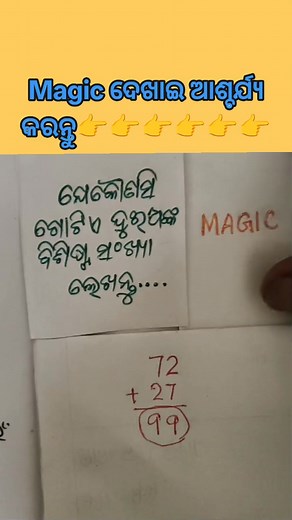 Magic ଦେଖାଇ ଆଶ୍ଚର୍ଯ୍ୟ
କରନ୍ତୁ👉👉👉👉👉👉
ଯେକୌଣସି
ଗୋଟିଏ ଦୁଇଅଙ୍କ
ବିଶିଷ୍ଟ ସଂଖ୍ୟା
ଲେଖନ୍ତୁ....
MAGIC
72
+ 27
99